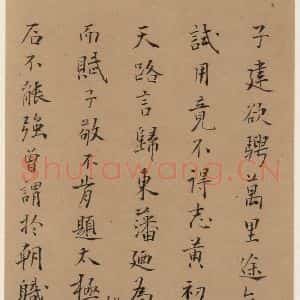 子建欲騁萬里途
試用竟不得志黃初
天路言歸東藩廼為
而賦子敬不肯題太極
石不能強曾謂於朝職
Shufawang.CN